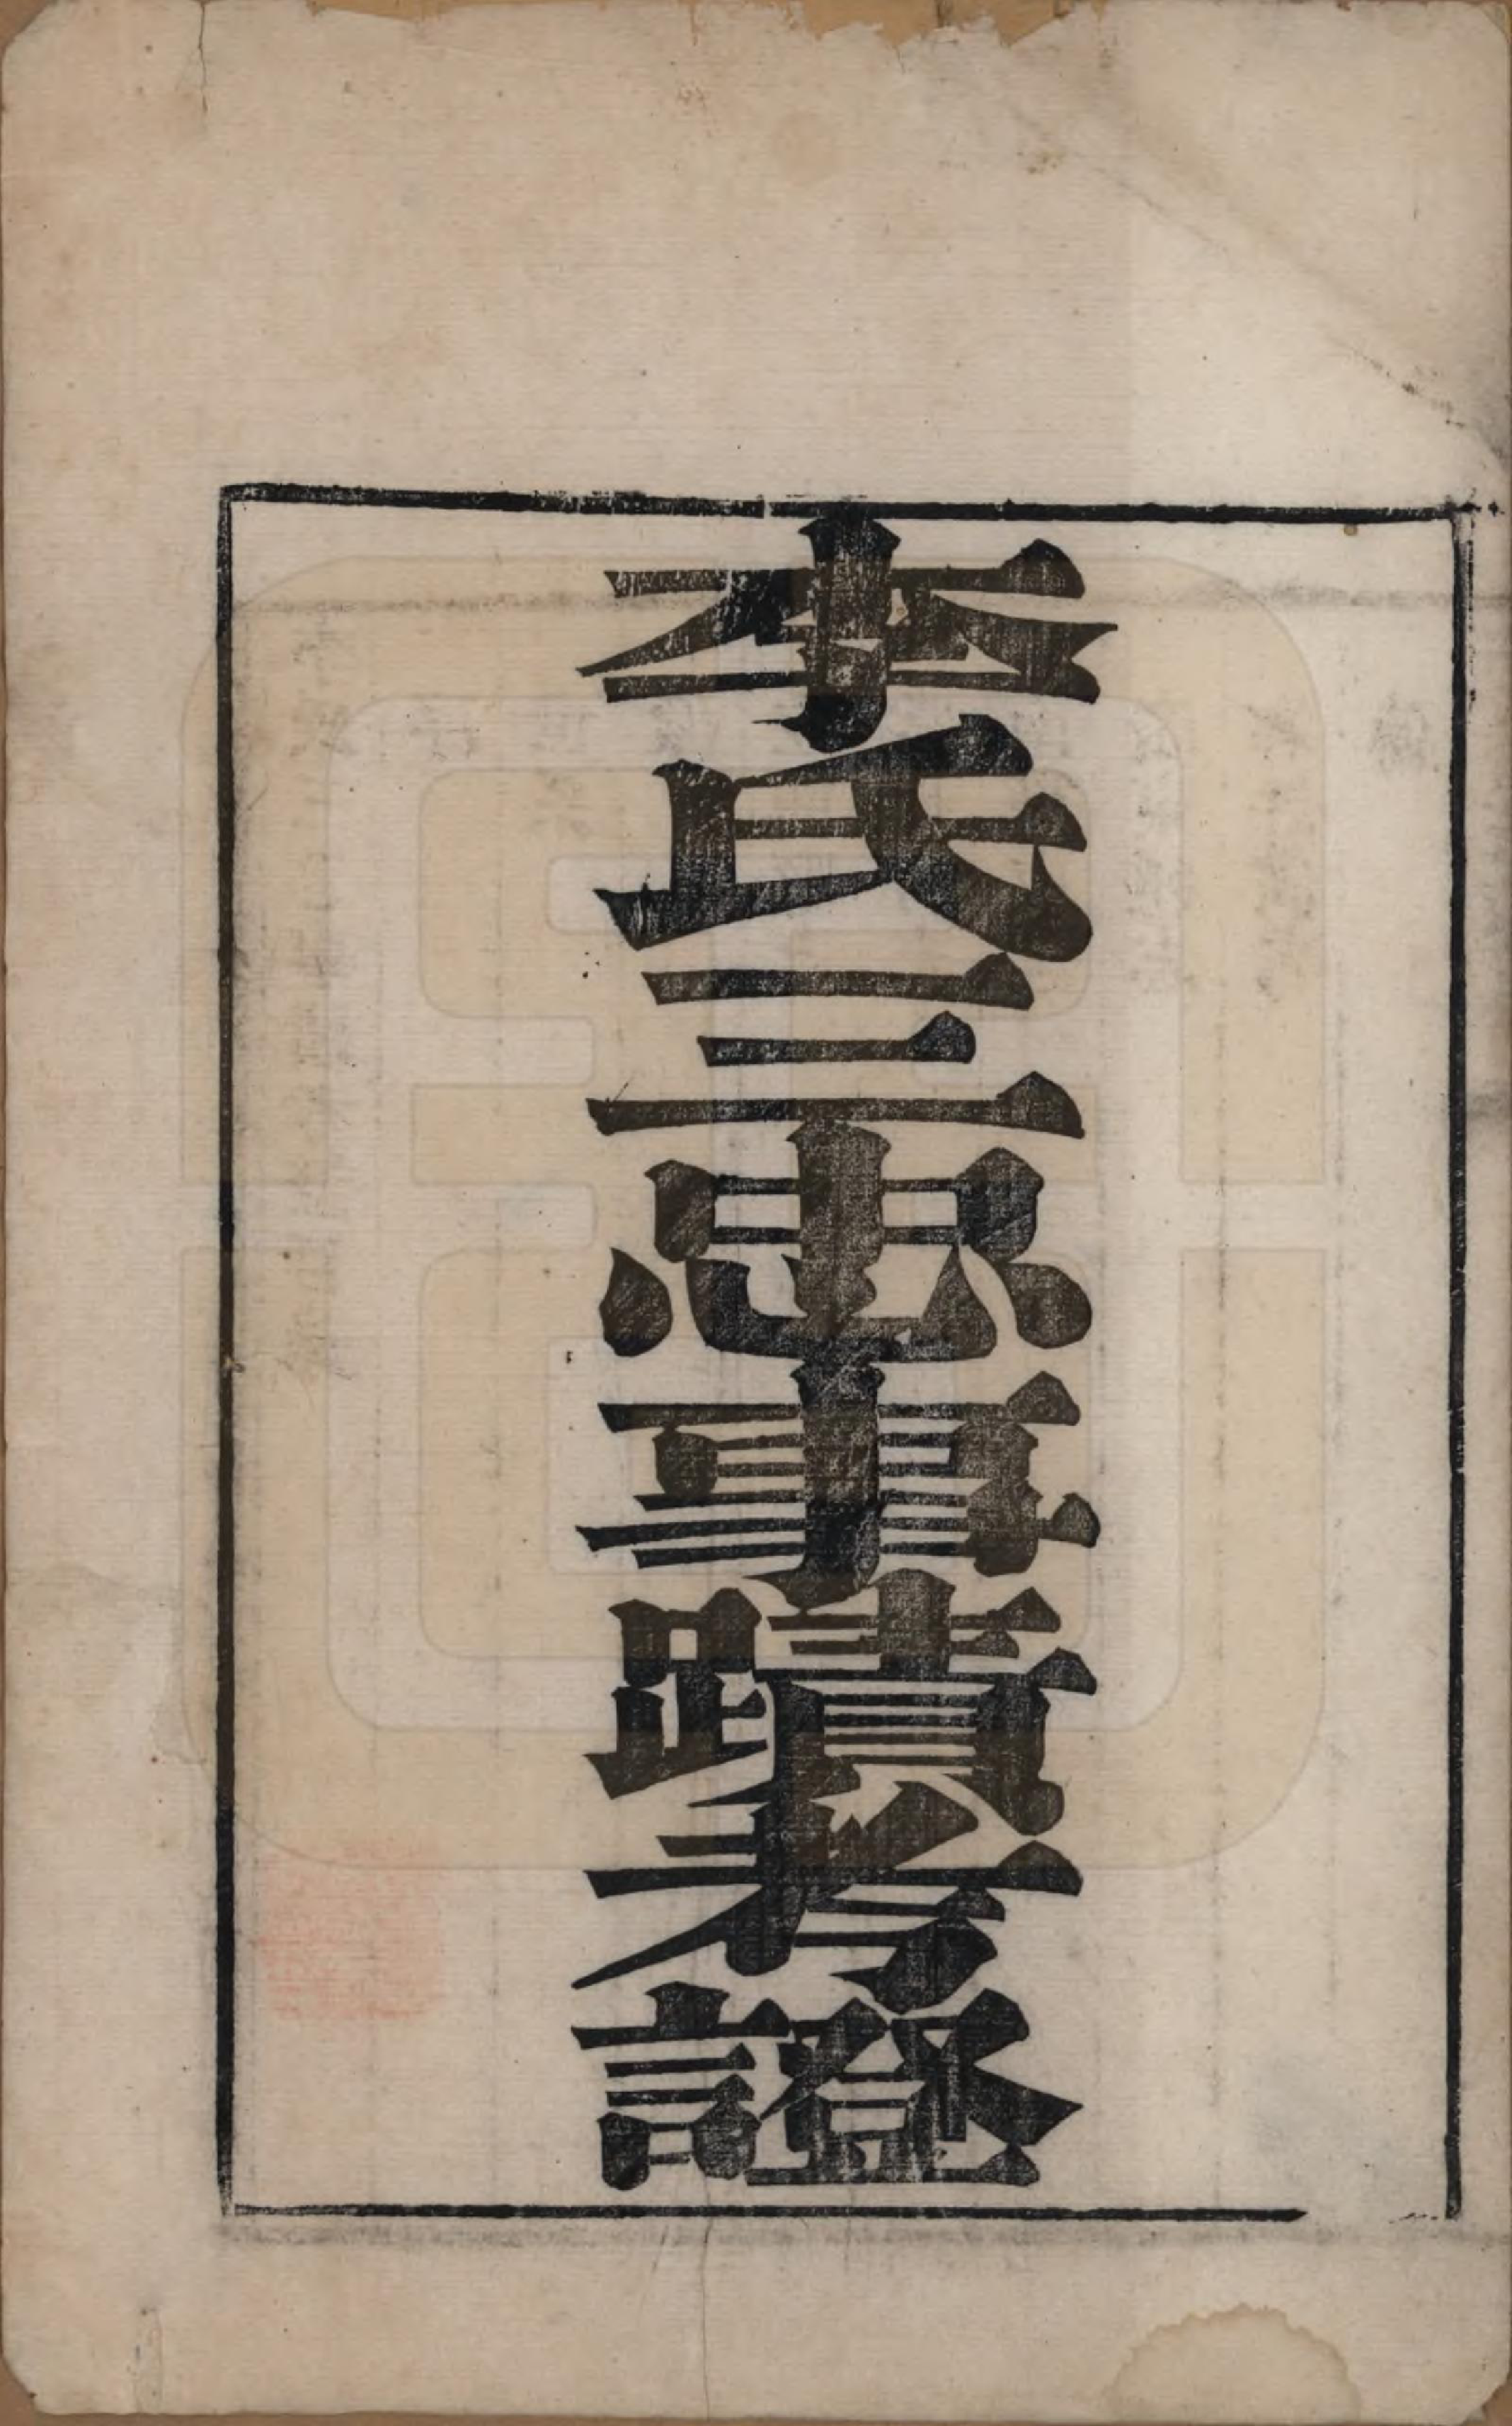 李氏三忠事蹟考證